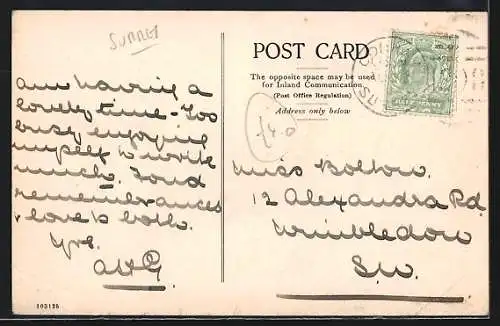 SURREY
am having a
lovely time - too
busy enjoying
myself to write
much. Fond
remembrances
& love to both.
Yrs.
AHG
103125
POST CARD
The opposite space may be used
for Inland Communication.
(Post Office Regulation)
Address only below
£4.0
HALFPENNY
SU
Miss Bolton.
12 Alexandra Rd
Wimbledon
S.W.